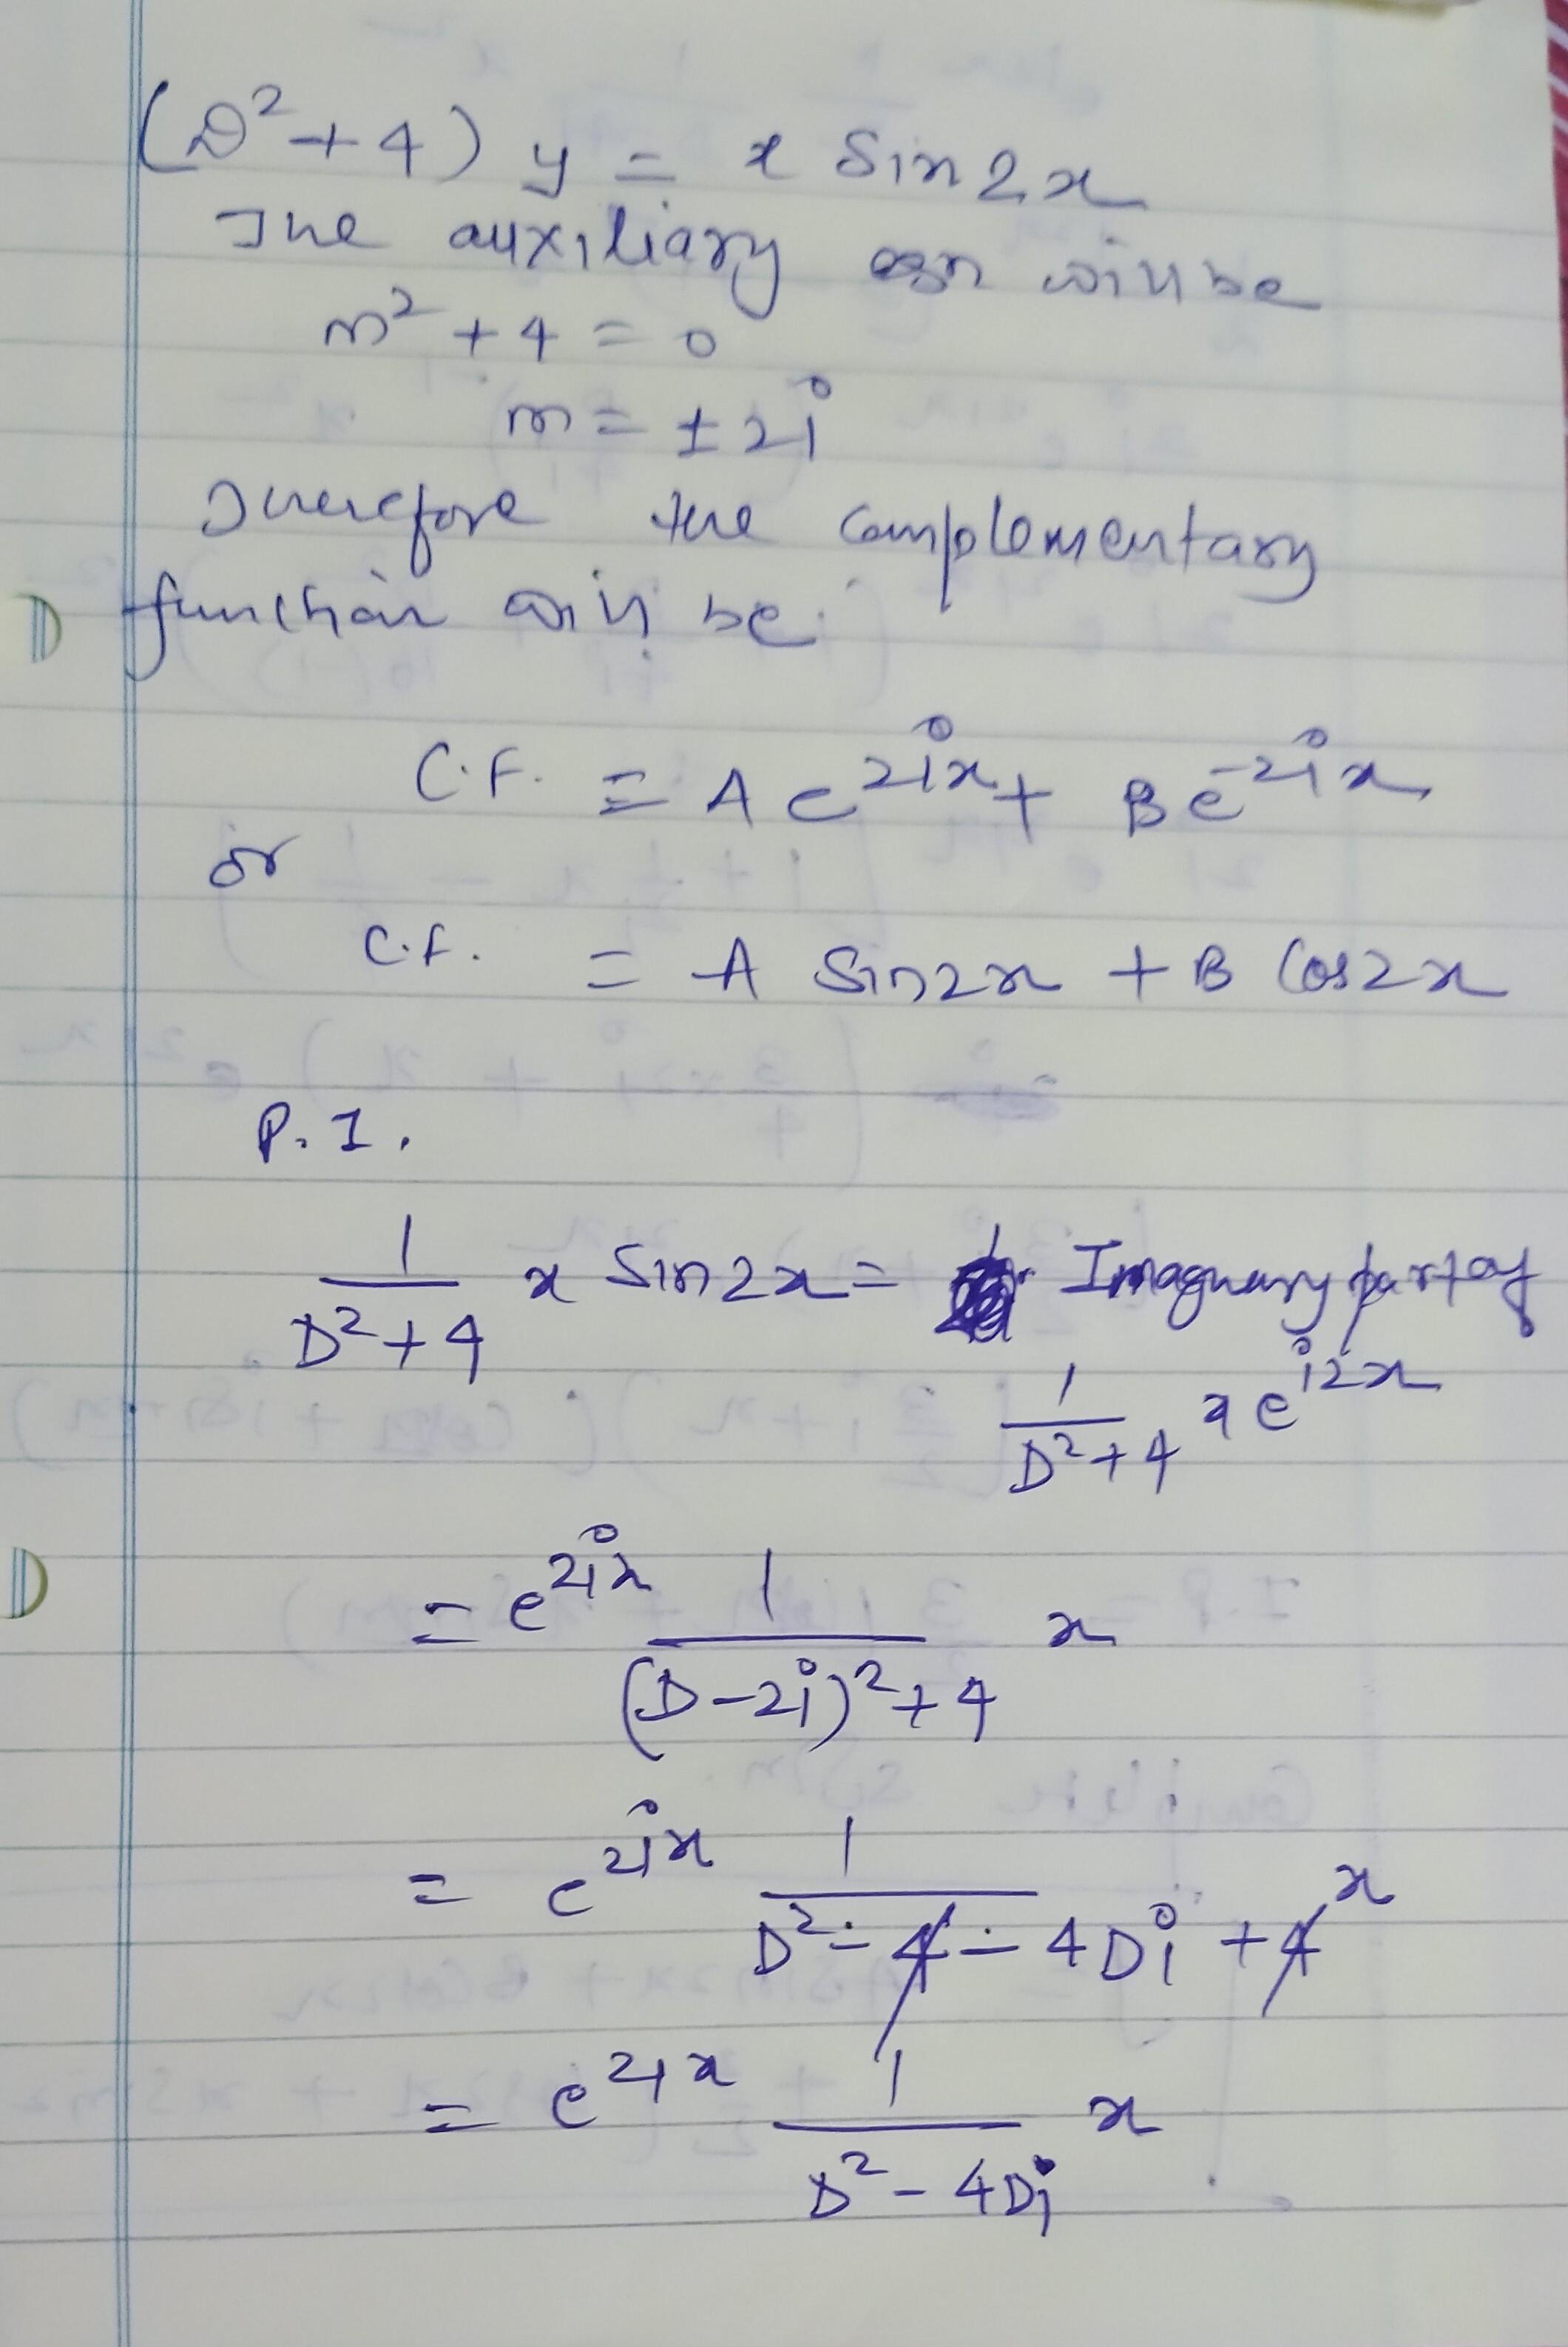 (D²+4) y = x Sin2x
The auxiliary eqn will be
m² + 4 = 0
m = ±2i
Therefore the complementary
function will be
C.F. = A e^{2ix} + B e^{-2ix}
or
C.F. = A Sin2x + B Cos2x
P.I.
\frac{1}{D²+4} x Sin2x = Imaginary part of
\frac{1}{D²+4} x e^{i2x}
= e^{2ix} \frac{1}{(D-2i)²+4} x
= e^{2ix} \frac{1}{D²-4-4Di+4} x
= e^{2ix} \frac{1}{D²-4Di} x